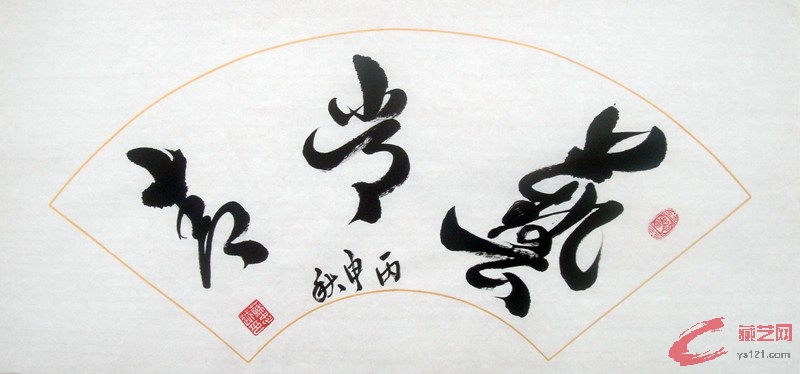 藝常青
丙申秋
藏艺网
ys121.com